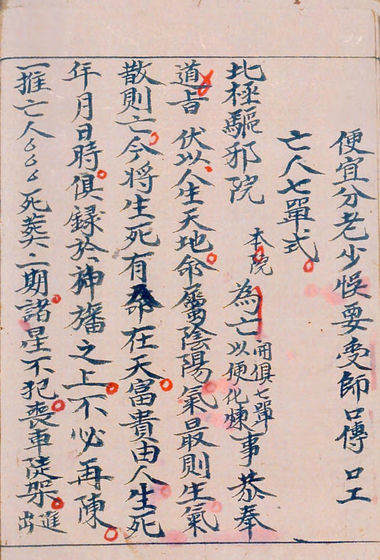 便宜分老少悞要受師口傳口工
亡人七單式
北極驅邪院 本院 為亡 開俱七單 以便化煉 事恭奉
道旨 伏以人生天地命屬陰陽氣最則生氣
散則亡今將生死有命在天富貴由人生死
年月日時俱録於神旛之上不必再陳
一推亡人死葬二期諸星不犯喪車陡架進出